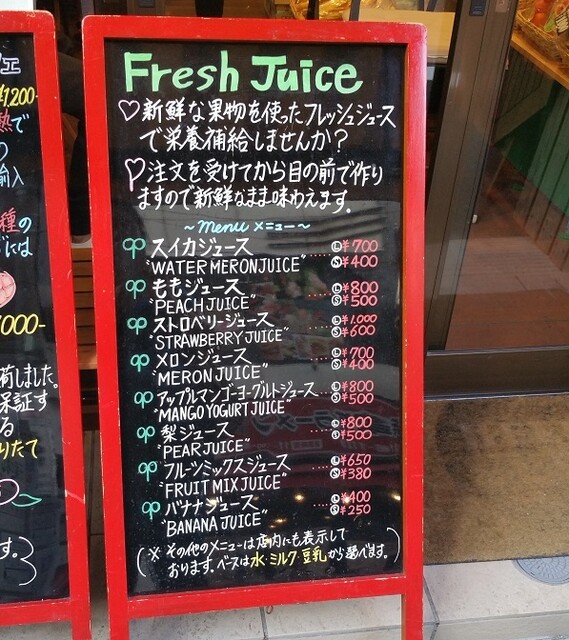 Fresh Juice
♡新鮮な果物を使ったフレッシュジュース
で栄養補給しませんか？
♡注文を受けてから目の前で作り
ますので新鮮なまま味わえます。
～menu メニュー～
スイカジュース ..... Ⓛ¥700
"WATER MERON JUICE" Ⓢ¥400
ももジュース ..... Ⓛ¥800
"PEACH JUICE" Ⓢ¥500
ストロベリージュース ..... Ⓛ¥1,000
"STRAWBERRY JUICE" Ⓢ¥600
メロンジュース ..... Ⓛ¥700
"MERON JUICE" Ⓢ¥400
アップルマンゴーヨーグルトジュース ... Ⓛ¥800
"MANGO YOGURT JUICE" Ⓢ¥500
梨ジュース ..... Ⓛ¥800
"PEAR JUICE" Ⓢ¥500
フルーツミックスジュース ..... Ⓛ¥650
"FRUIT MIX JUICE" Ⓢ¥380
バナナジュース ..... Ⓛ¥400
"BANANA JUICE" Ⓢ¥250
(※ その他のメニューは店内にも表示して
おります。ベースは水・ミルク・豆乳から選べます。)
ェ
¥1,200-
熱で
の
輸入
種の
には
000-
荷しました。
保証す
る
りたて
す。